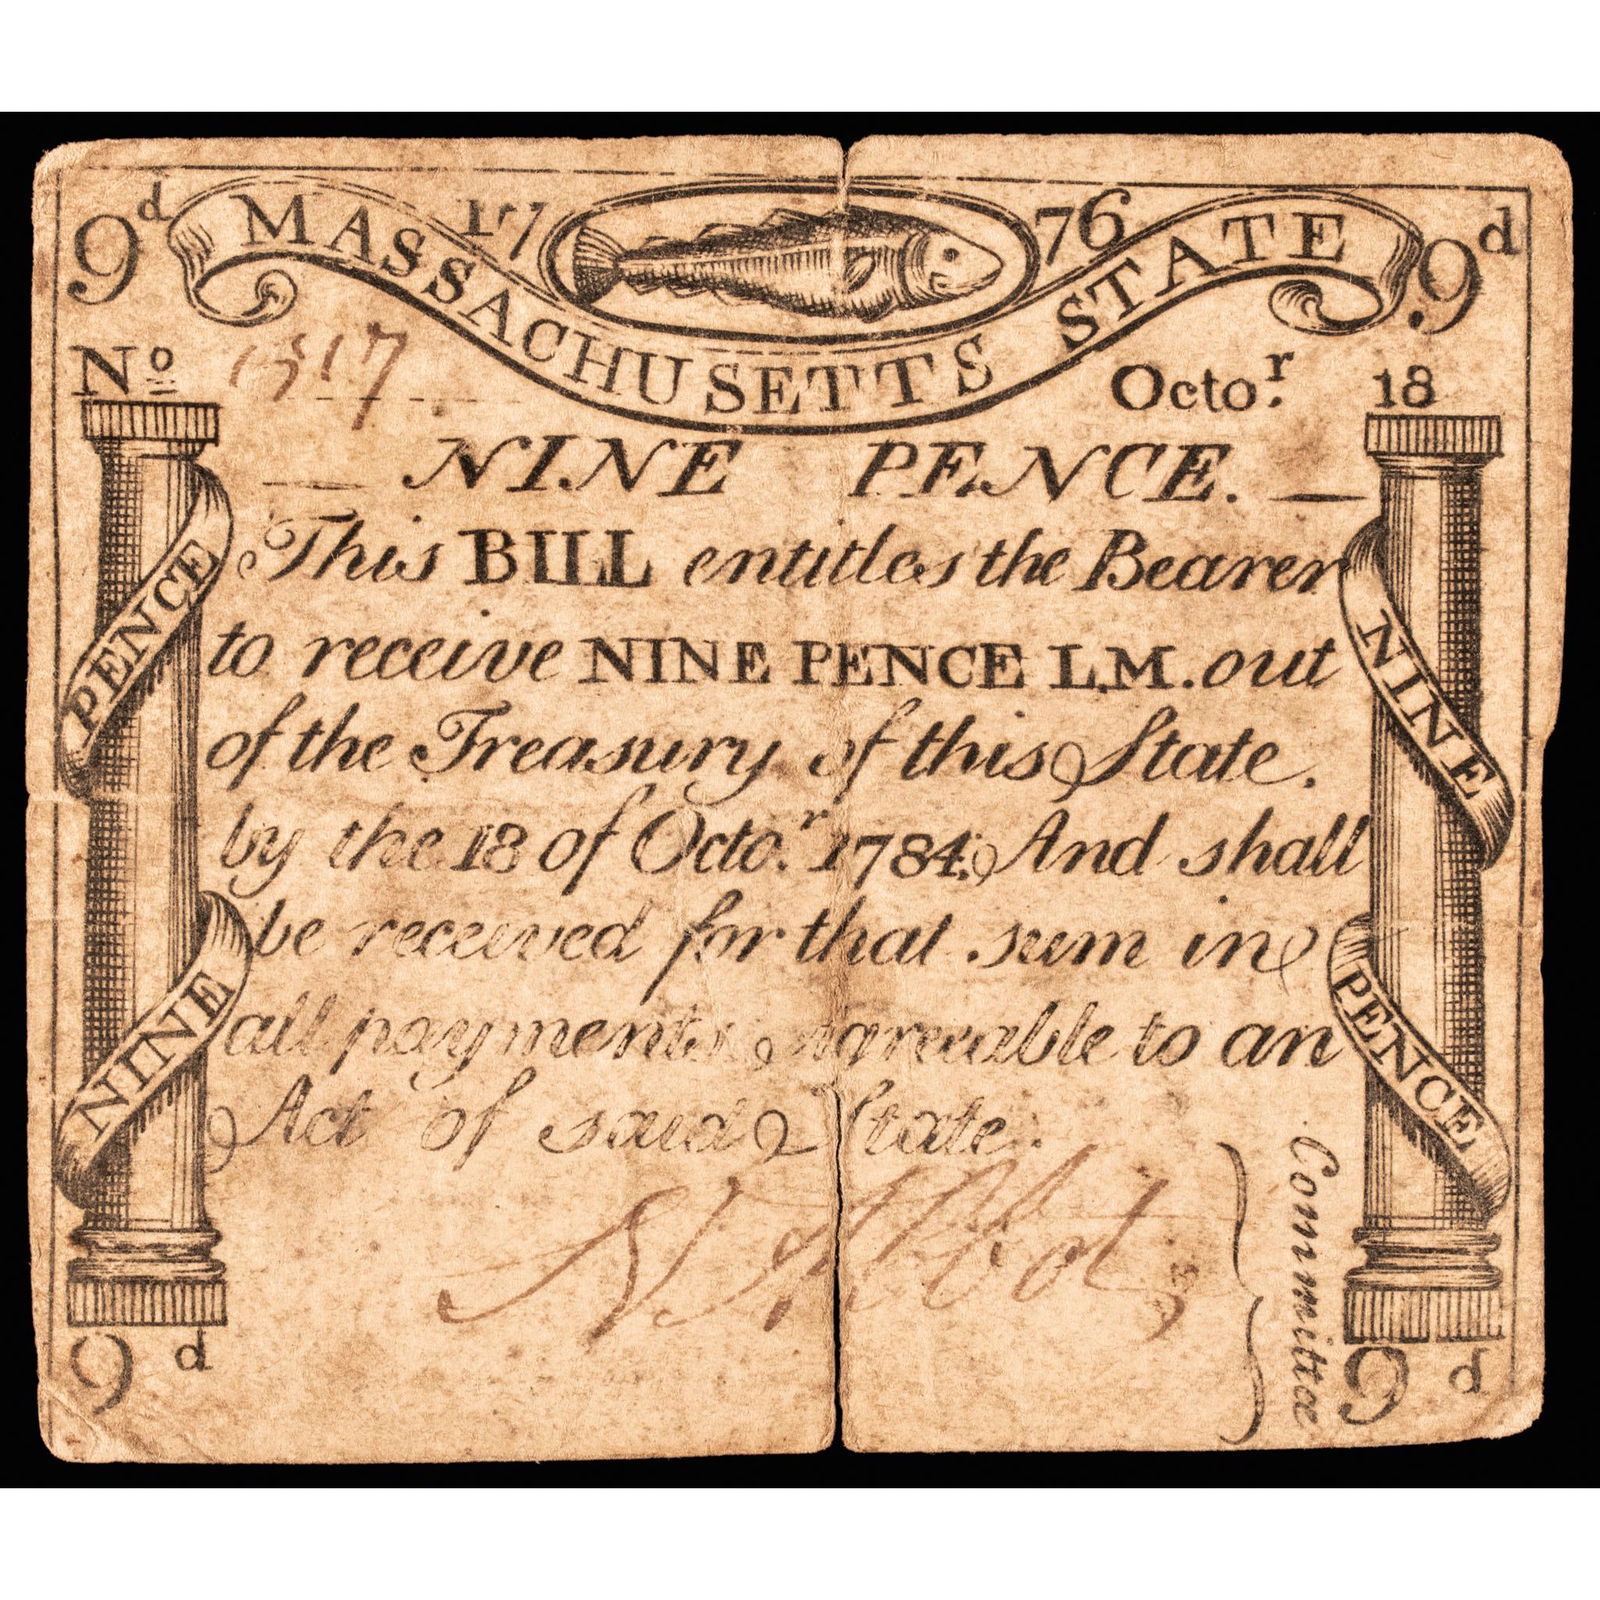 9d 17 76 9d
MASSACHUSETTS STATE
No 1317 Octo.r 18
NINE PENCE.
This BILL entitles the Bearer
to receive NINE PENCE L.M. out
of the Treasury of this State.
by the 18 of Octo.r 1784. And shall
be received for that sum in
all payments agreeable to an
Act of said State.
NINE PENCE
NINE PENCE
N Abbot
Committee
9d 9d